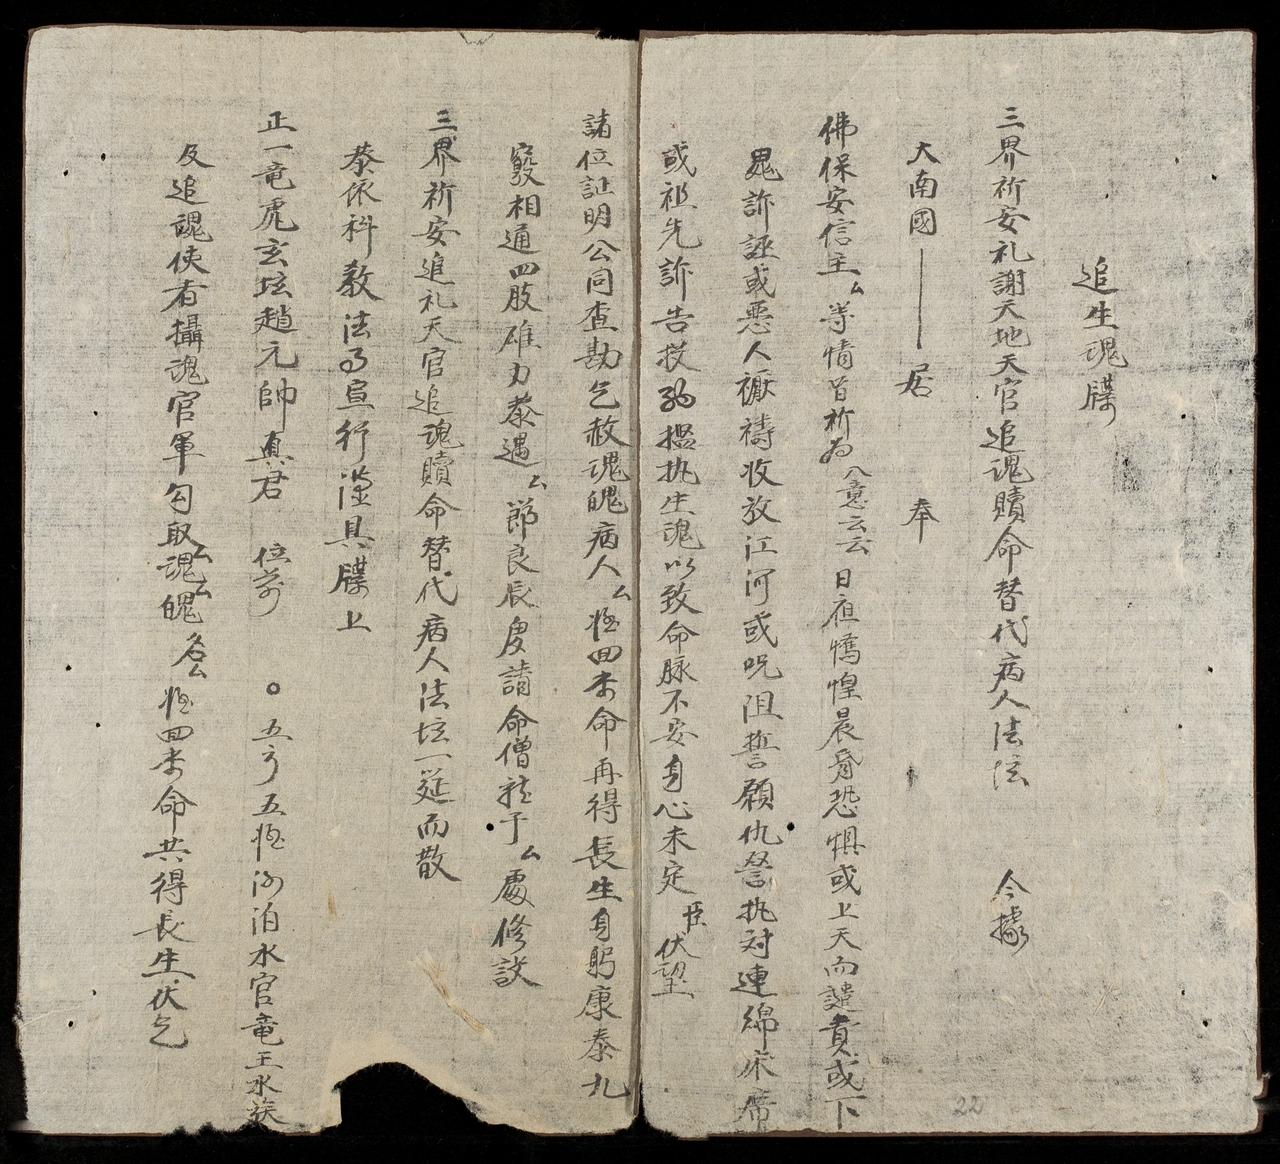 追生魂牒
三界祈安礼謝天地天官追魂贖命替代病人法坛 今據
大南國 居 奉
佛保安信主厶等情旨祈为 入意云云 日夜憍惶晨昏恐惧或上天而譴責或下
鬼訴誣或悪人禳禱收放江河或呪阻誓願仇讐执対連綿床席
或祖先訴告投 搵执生魂以致命脉不安身心未定 臣 伏望
諸位証明公同查勘乞赦魂魄病人厶 回本命再得長生身躬康泰九
竅相通四肢雄力恭遇厶 節良辰虔請命僧 于厶 處修設
三界祈安追礼天官追魂贖命替代病人法坛一筵而散
恭依科教法事宣行谨具牒上
正一竜虎玄坛趙元帥真君 位前 ○五方五 泊水官竜王水族
及追魂使者攝魂官軍勾取魂厶魄厶名厶 回本命共得長生伏乞
22